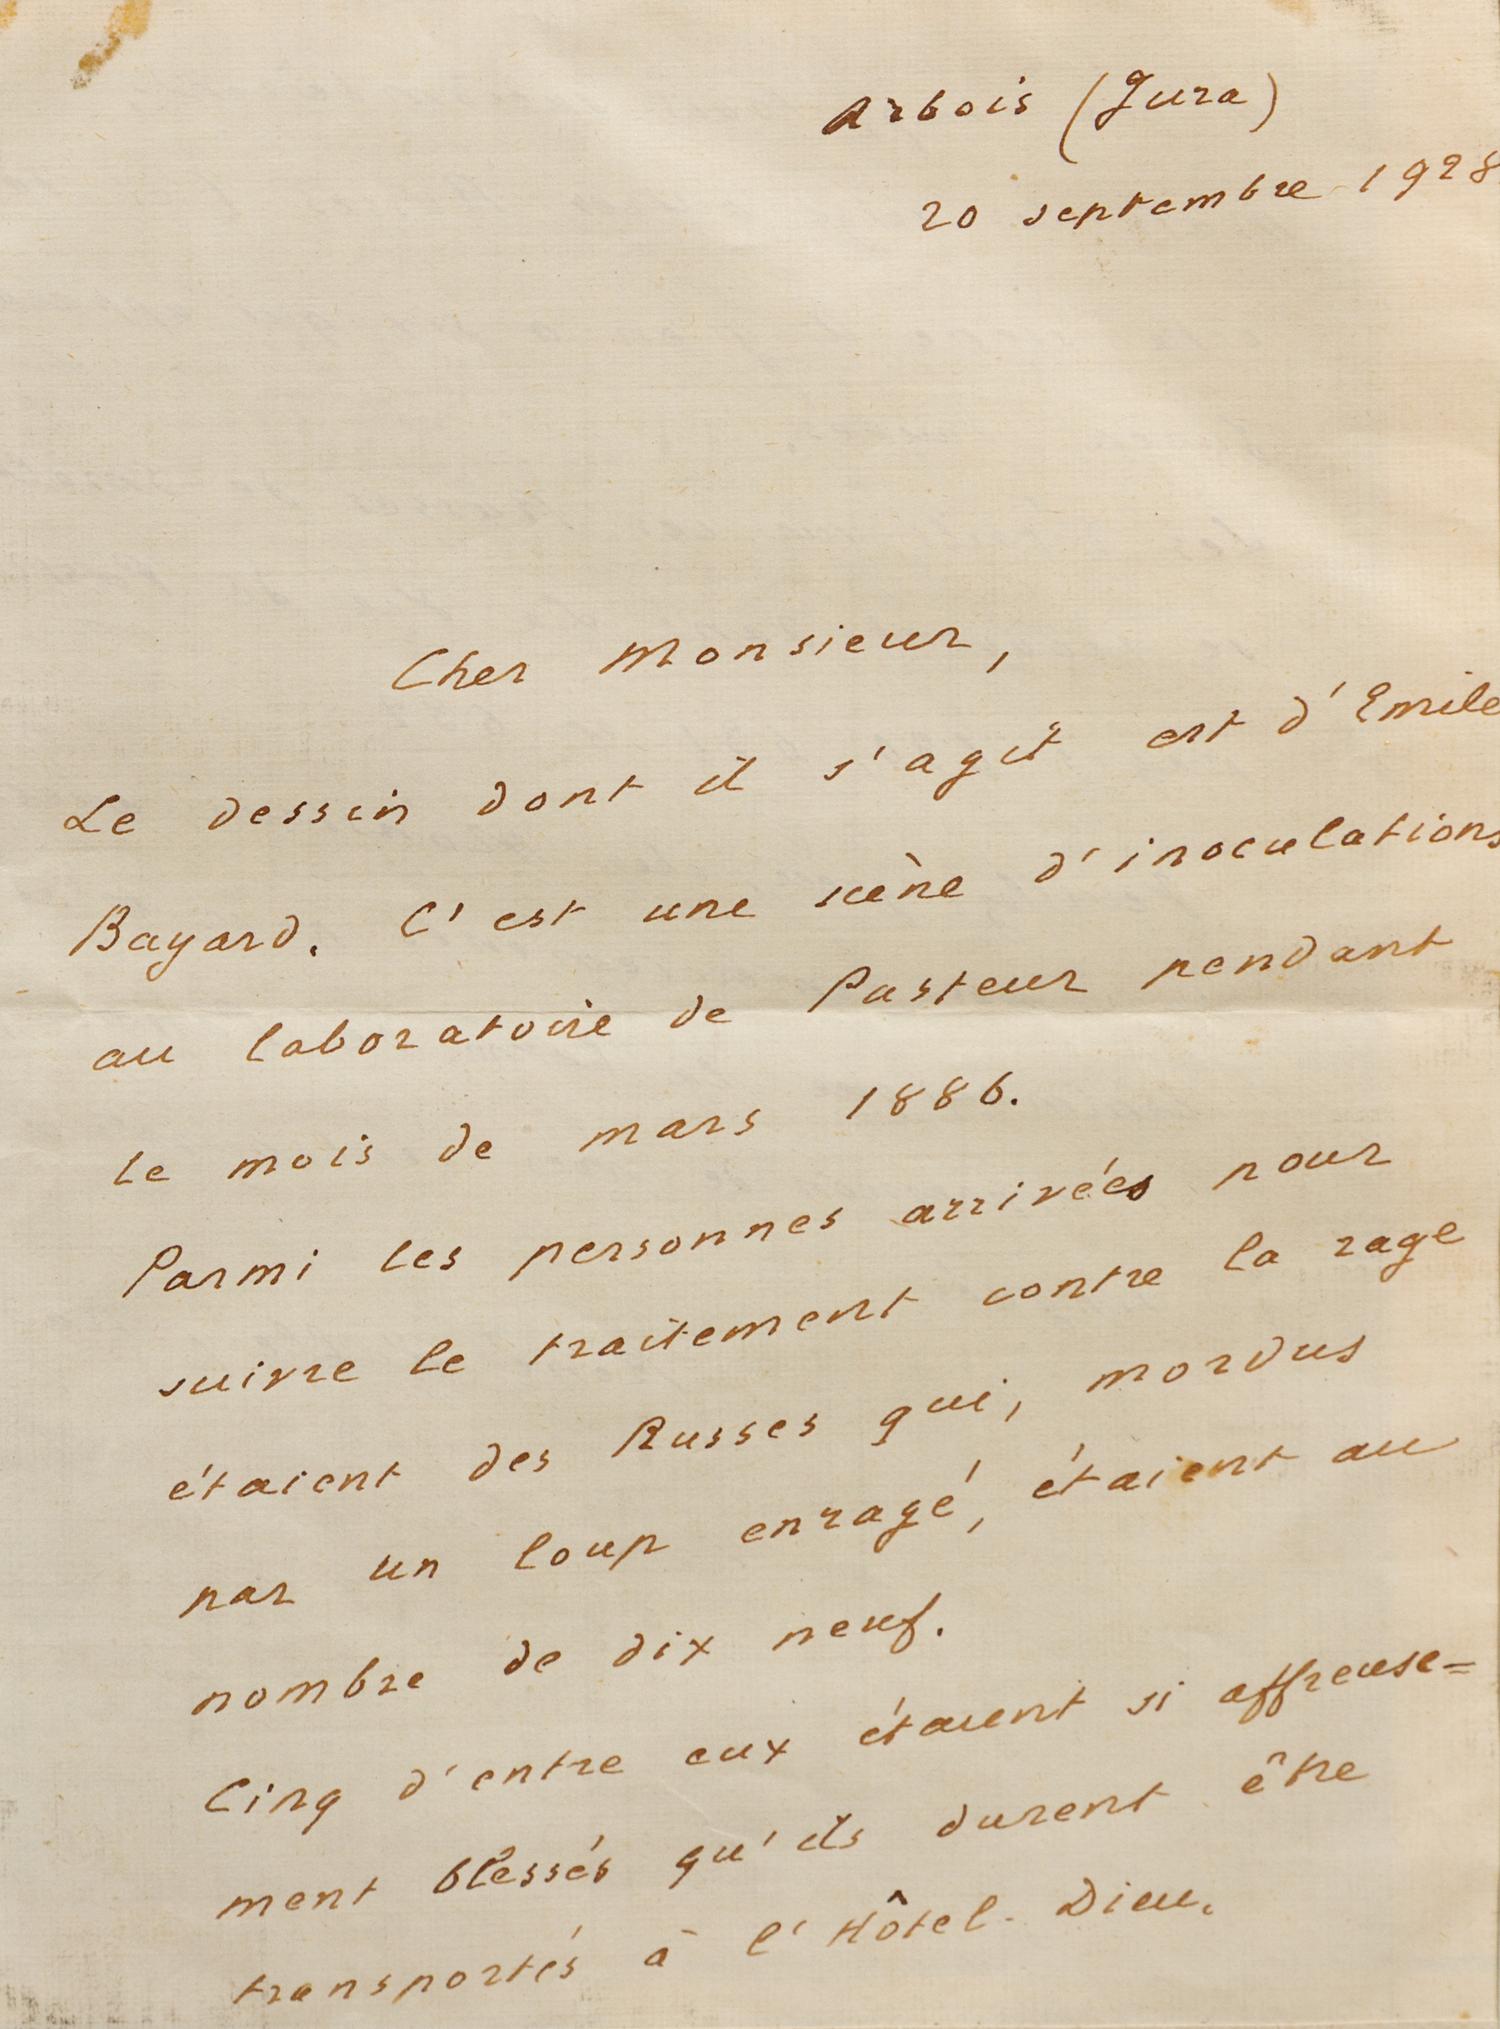 Arbois (Jura)
20 septembre 1928
Cher Monsieur,
Le dessin dont il s'agit est d'Emile
Bayard. C'est une scène d'inoculations
au laboratoire de Pasteur pendant
le mois de mars 1886.
Parmi les personnes arrivées pour
suivre le traitement contre la rage
étaient des Russes qui, mordus
par un loup enragé, étaient au
nombre de dix neuf.
Cinq d'entre eux étaient si affreuse=
ment blessés qu'ils durent être
transportés à l'Hôtel-Dieu.